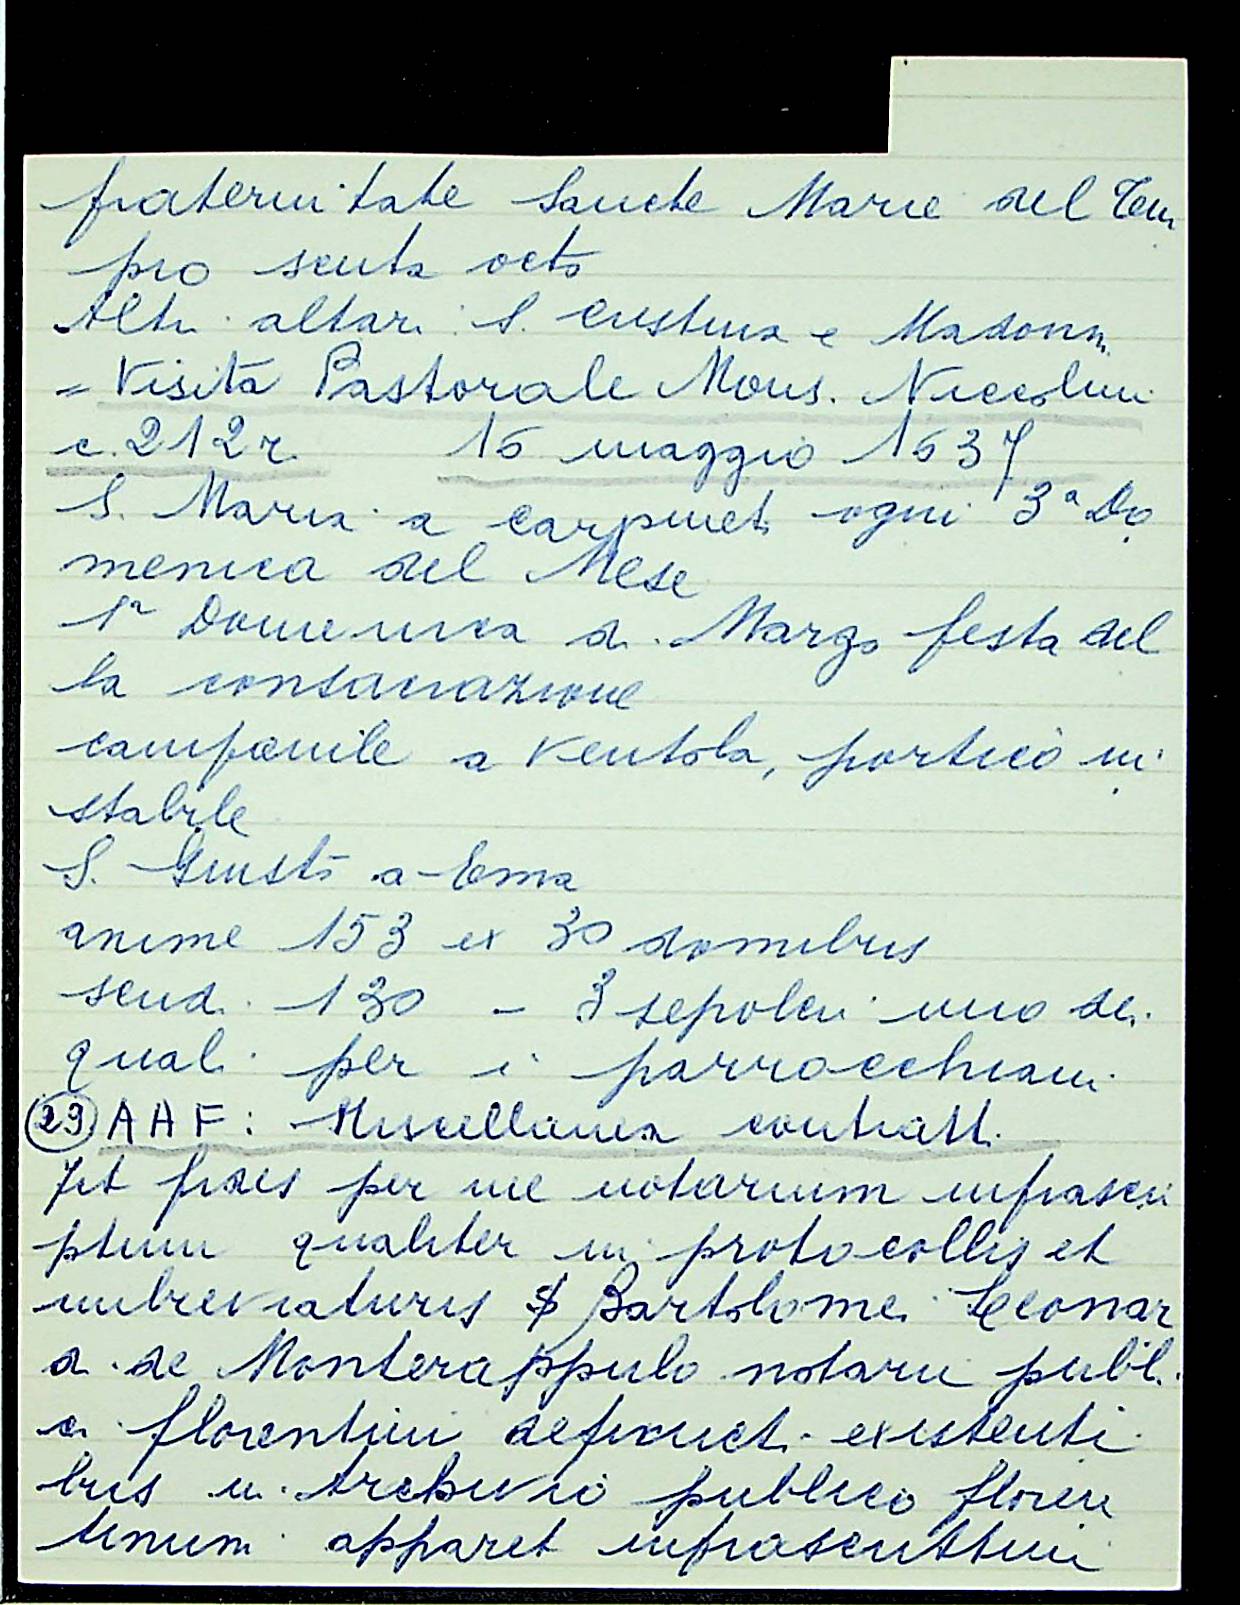 fraternitate Sancte Marie del Tem
pro scuta octo
Altri altari: S. Cristina e Madonn.
= Visita Pastorale Mons. Niccolini
c. 212 r. 16 maggio 1637
S. Maria a Carpineti ogni 3ª Do
menica del Mese
1ª Domenica di Marzo festa del
la consacrazione
campanile a ventola, portico in
stabile
S. Giusto a Ema
anime 153 ex 30 domibus
scudi 130 - 3 sepolcri uno dei
quali per i parrocchiani
(29) AAF: Miscellanea contratti
fit fides per me notarium infrascri
ptum qualiter in protocollis et
imbreviaturis $ Bartolomei Leonar
di de Monterappulo notarii publi
ci florentini defuncti existenti
bus in Archivio publico floren
tinum apparet infrascrittum